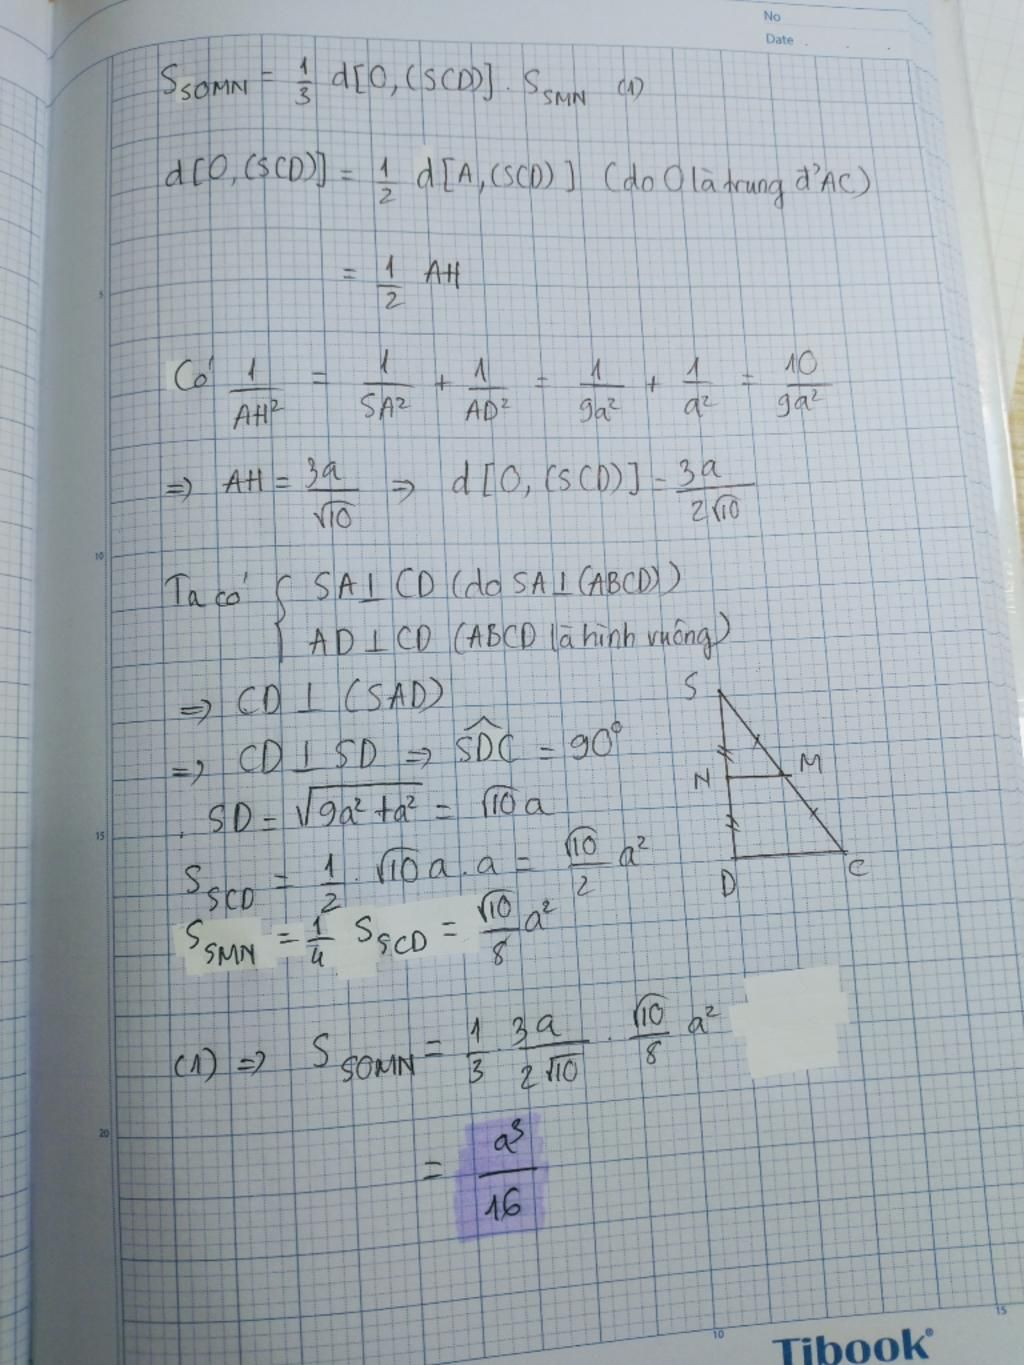 No
Date
S_SOMN = 1/3 d[O, (SCD)] . S_SMN (1)
d[O, (SCD)] = 1/2 d[A, (SCD)] (do O là trung đ' AC)
= 1/2 AH
Có 1/AH² = 1/SA² + 1/AD² = 1/9a² + 1/a² = 10/9a²
=> AH = 3a/√10 => d[O, (SCD)] = 3a/2√10
Ta có { SA ⊥ CD (do SA ⊥ (ABCD))
AD ⊥ CD (ABCD là hình vuông)
=> CD ⊥ (SAD)
=> CD ⊥ SD => SDC = 90°
. SD = √(9a² + a²) = √10 a
S_SCD = 1/2 . √10 a . a = √10/2 a²
S_SMN = 1/4 S_SCD = √10/8 a²
S
N
M
D
C
(1) => S_SOMN = 1/3 . 3a/2√10 . √10/8 a²
= a³/16
5
10
15
20
10
15
Tibook®